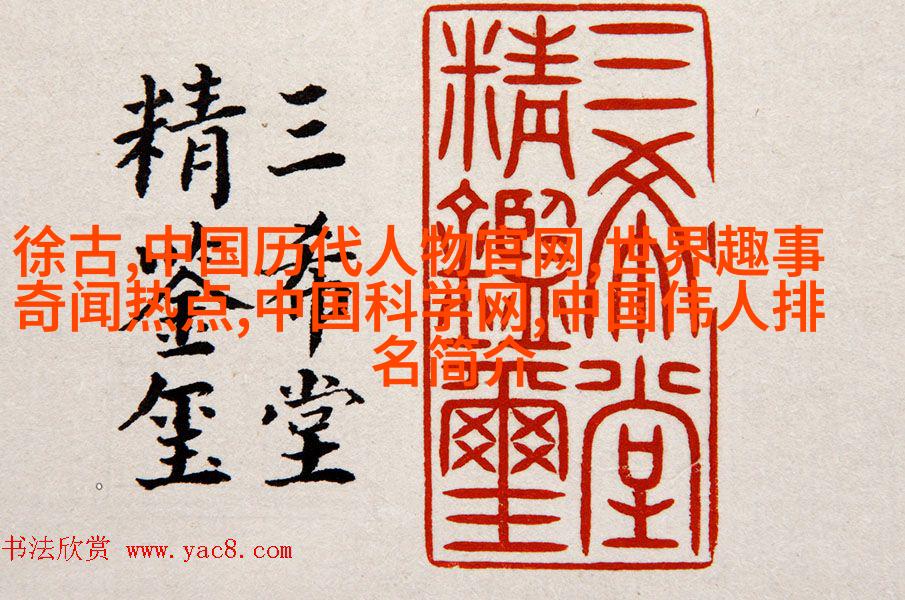 三希堂
精鉴玺
三希堂
精鑑璽
徐古,中国历代人物官网,世界趣事
奇闻热点,中国科学网,中国伟人排
名简介
书法欣赏 www.yac8.com